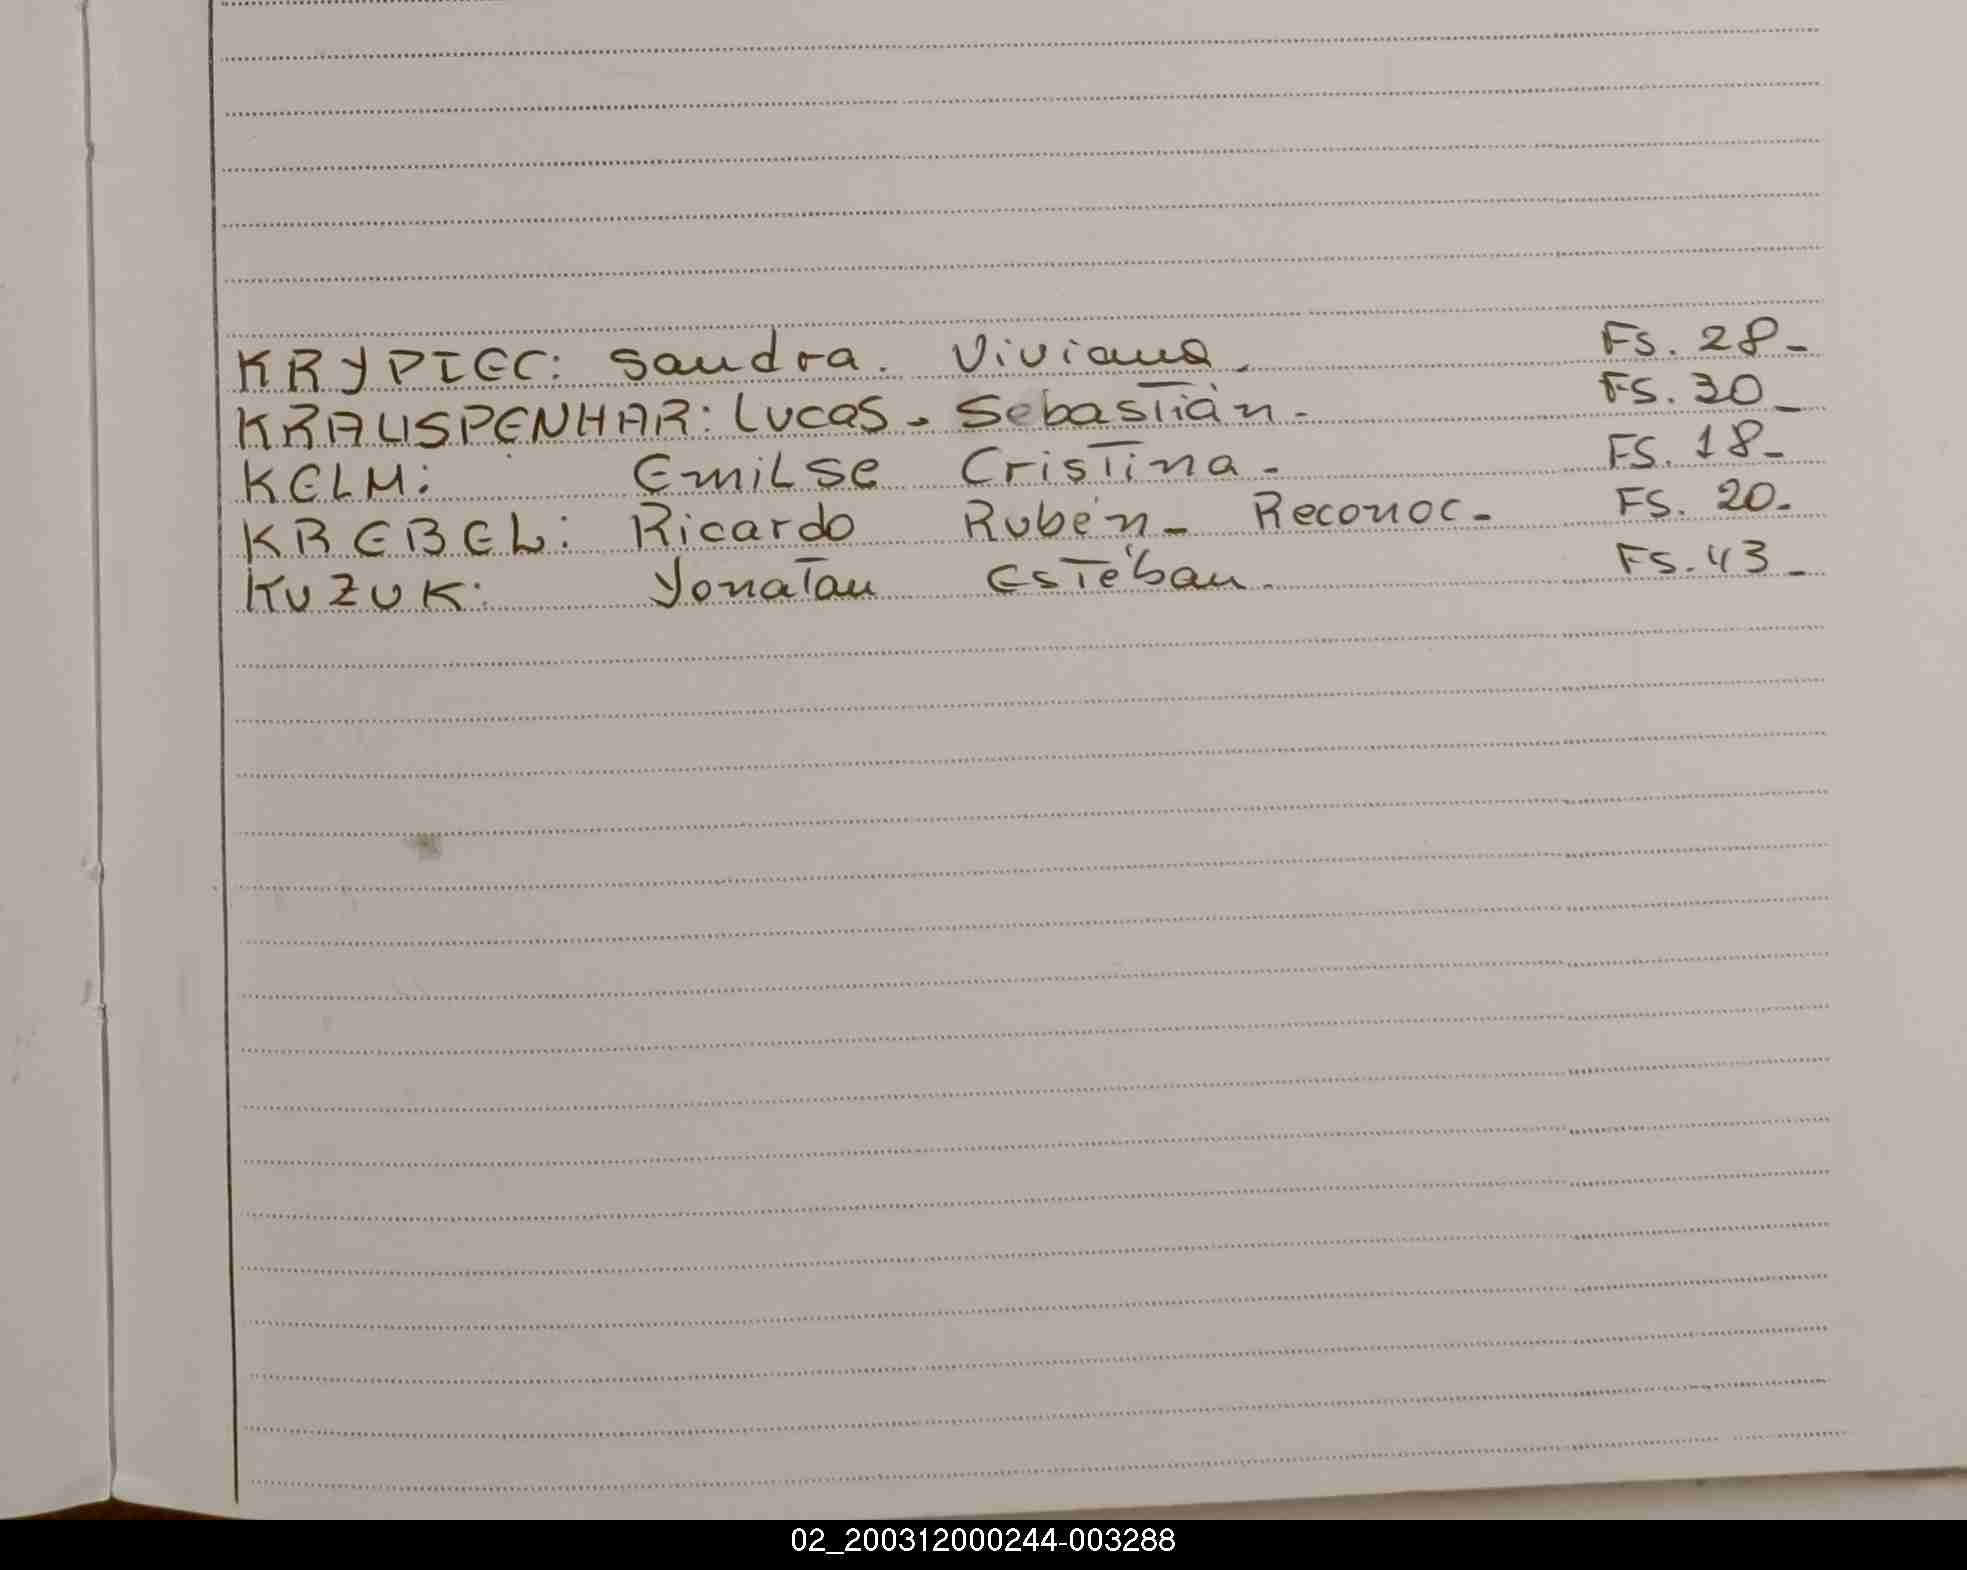 KRYPIEC: Sandra. Viviana. Fs. 28-
KRAUSPENHAR: Lucas. Sebastián. Fs. 30-
KELM: Emilse Cristina- FS. 18-
KREBEL: Ricardo Rubén- Reconoc- FS. 20-
KUZUK: Yonatan Estéban. Fs. 43-
02_200312000244-003288